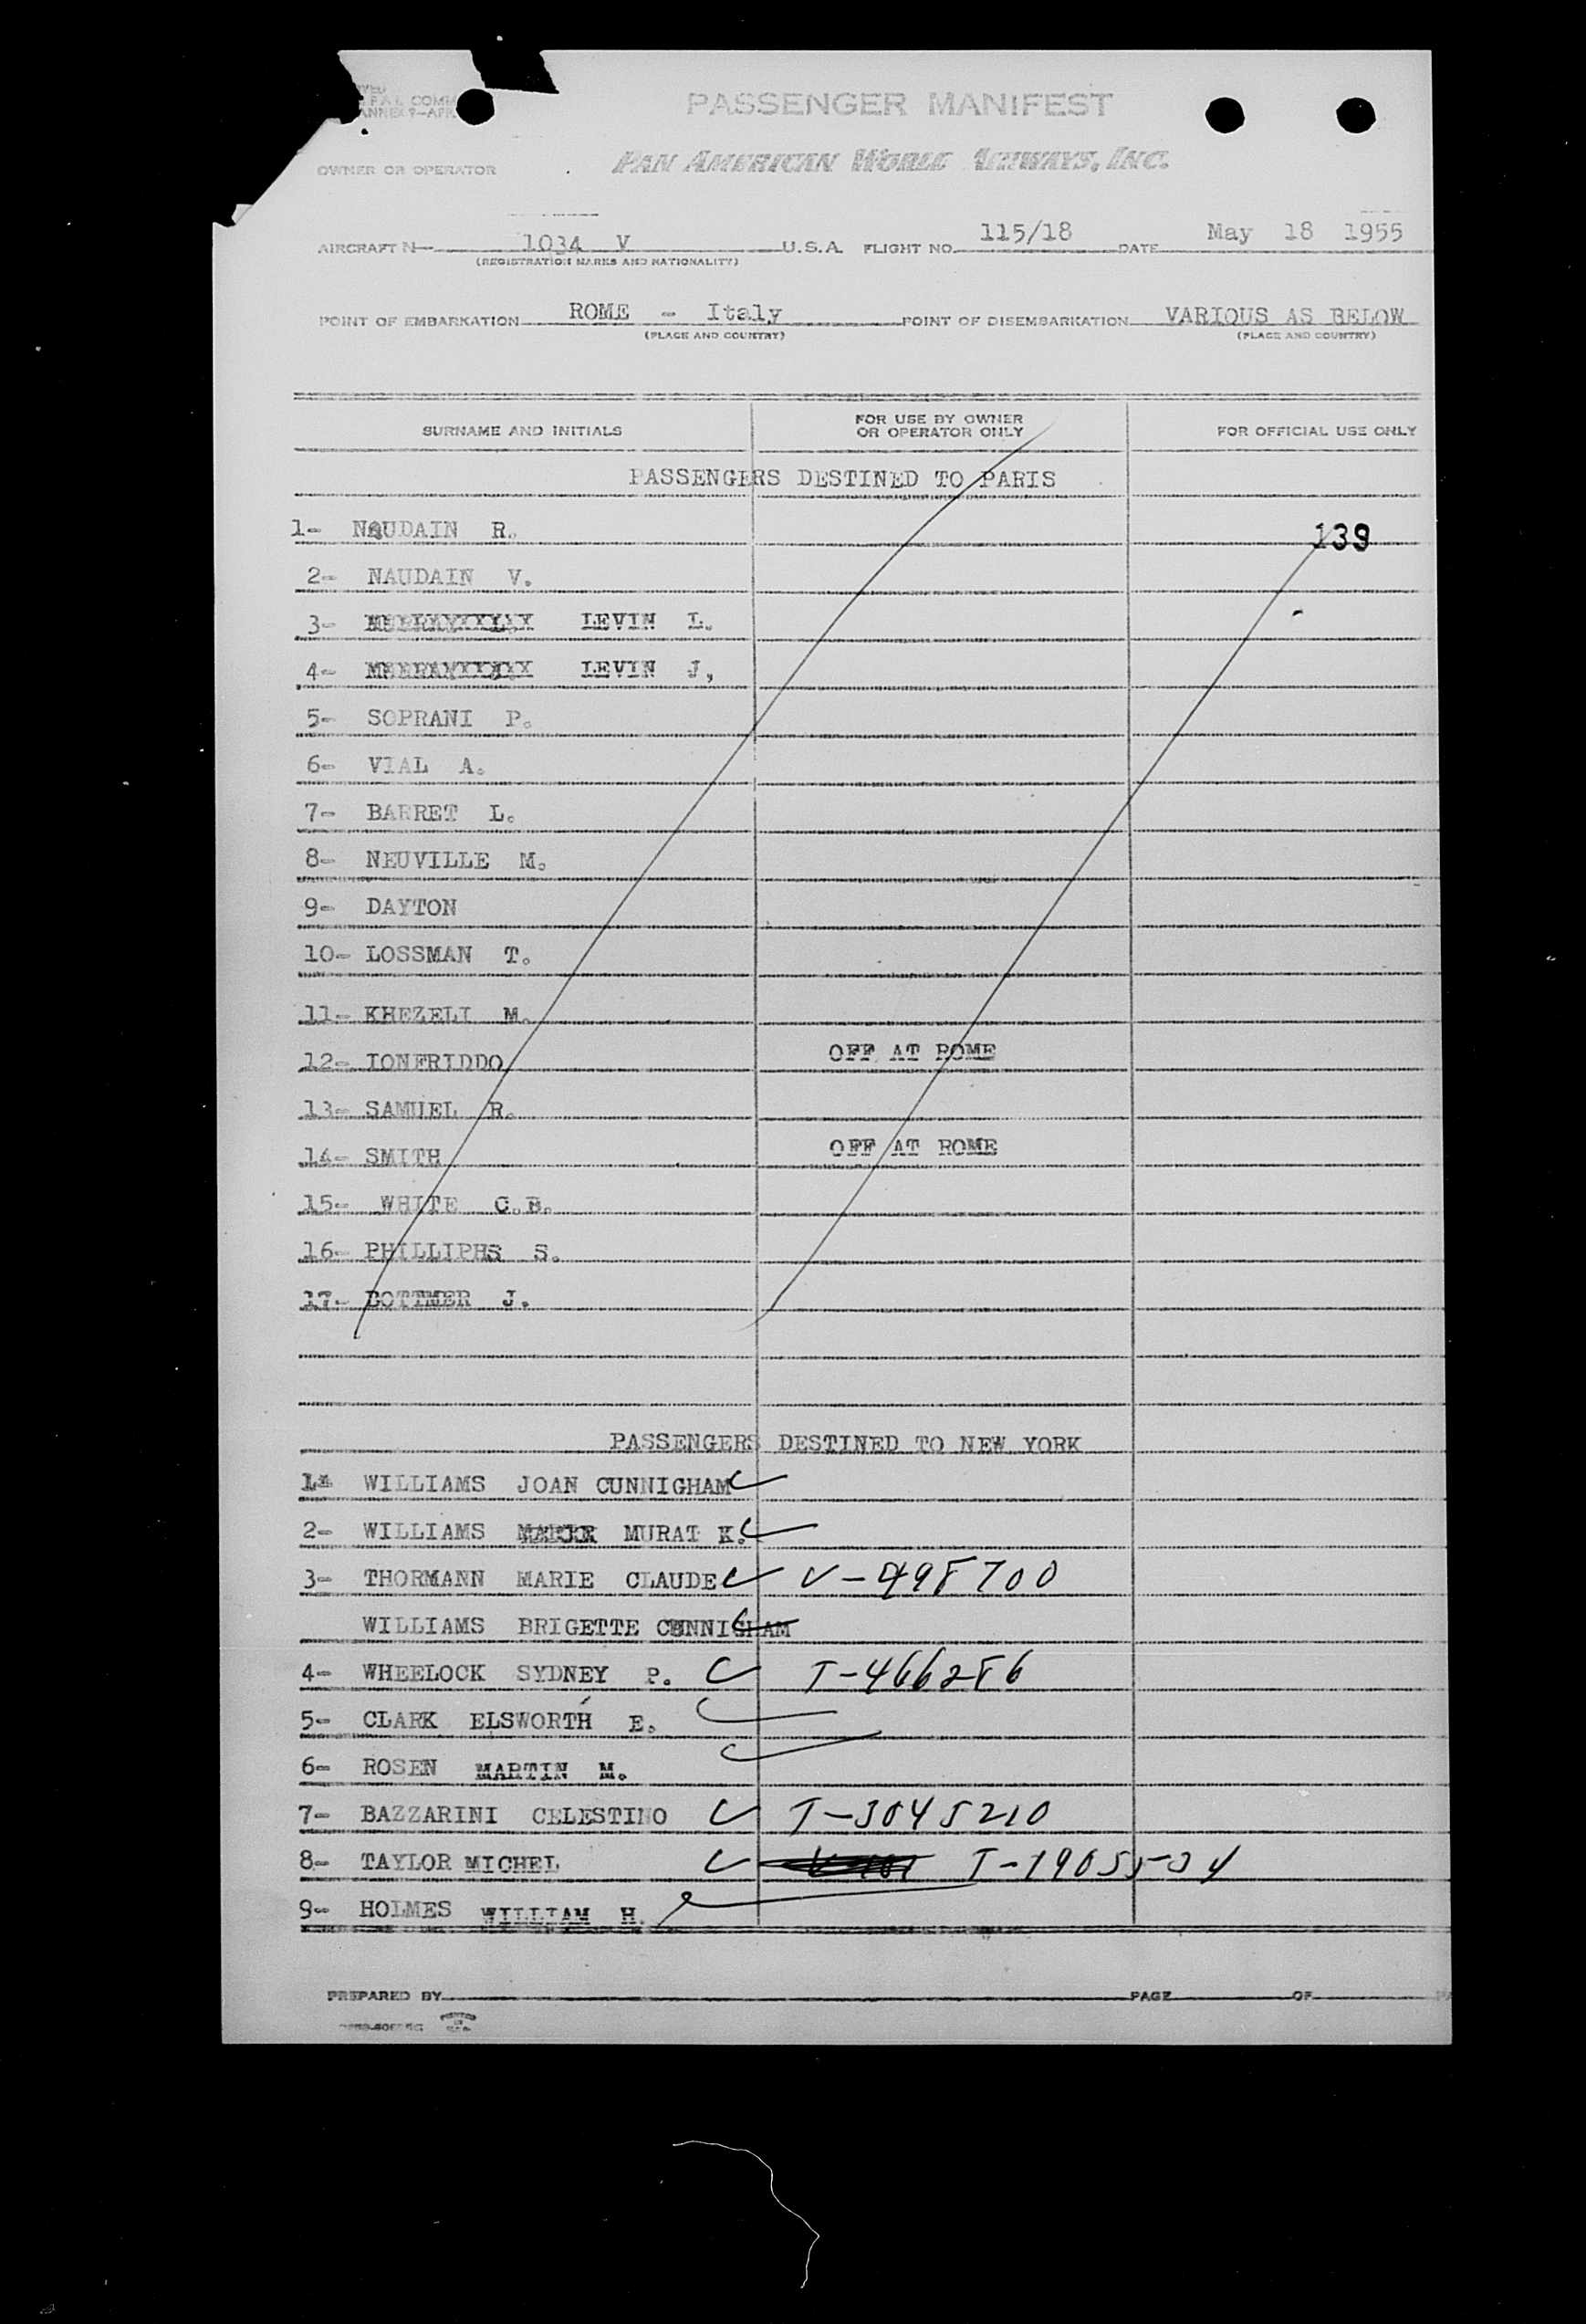 PASSENGER MANIFEST
OWNER OR OPERATOR PAN AMERICAN WORLD AIRWAYS, INC.
AIRCRAFT N 1034 V U.S.A. FLIGHT NO. 115/18 DATE May 18 1955
(REGISTRATION MARKS AND NATIONALITY)
POINT OF EMBARKATION ROME - Italy POINT OF DISEMBARKATION VARIOUS AS BELOW
(PLACE AND COUNTRY) (PLACE AND COUNTRY)
SURNAME AND INITIALS FOR USE BY OWNER OR OPERATOR ONLY FOR OFFICIAL USE ONLY
PASSENGERS DESTINED TO PARIS
1- NAUDAIN R. 139
2- NAUDAIN V.
3- LEVIN L.
4- LEVIN J,
5- SOPRANI P.
6- VIAL A.
7- BARRET L.
8- NEUVILLE M.
9- DAYTON
10- LOSSMAN T.
11- KHEZELI M.
12- IONFRIDDO OFF AT ROME
13- SAMUEL R.
14- SMITH OFF AT ROME
15- WHITE C.B.
16- PHILLIPHS S.
17- BOTTMER J.
PASSENGERS DESTINED TO NEW YORK
1- WILLIAMS JOAN CUNNIGHAM
2- WILLIAMS MURAT K.
3- THORMANN MARIE CLAUDE V-498700
WILLIAMS BRIGETTE CUNNIGHAM
4- WHEELOCK SYDNEY P. T-466286
5- CLARK ELSWORTH E.
6- ROSEN MARTIN M.
7- BAZZARINI CELESTINO T-3045210
8- TAYLOR MICHEL T-1905534
9- HOLMES WILLIAM H.
PREPARED BY PAGE OF